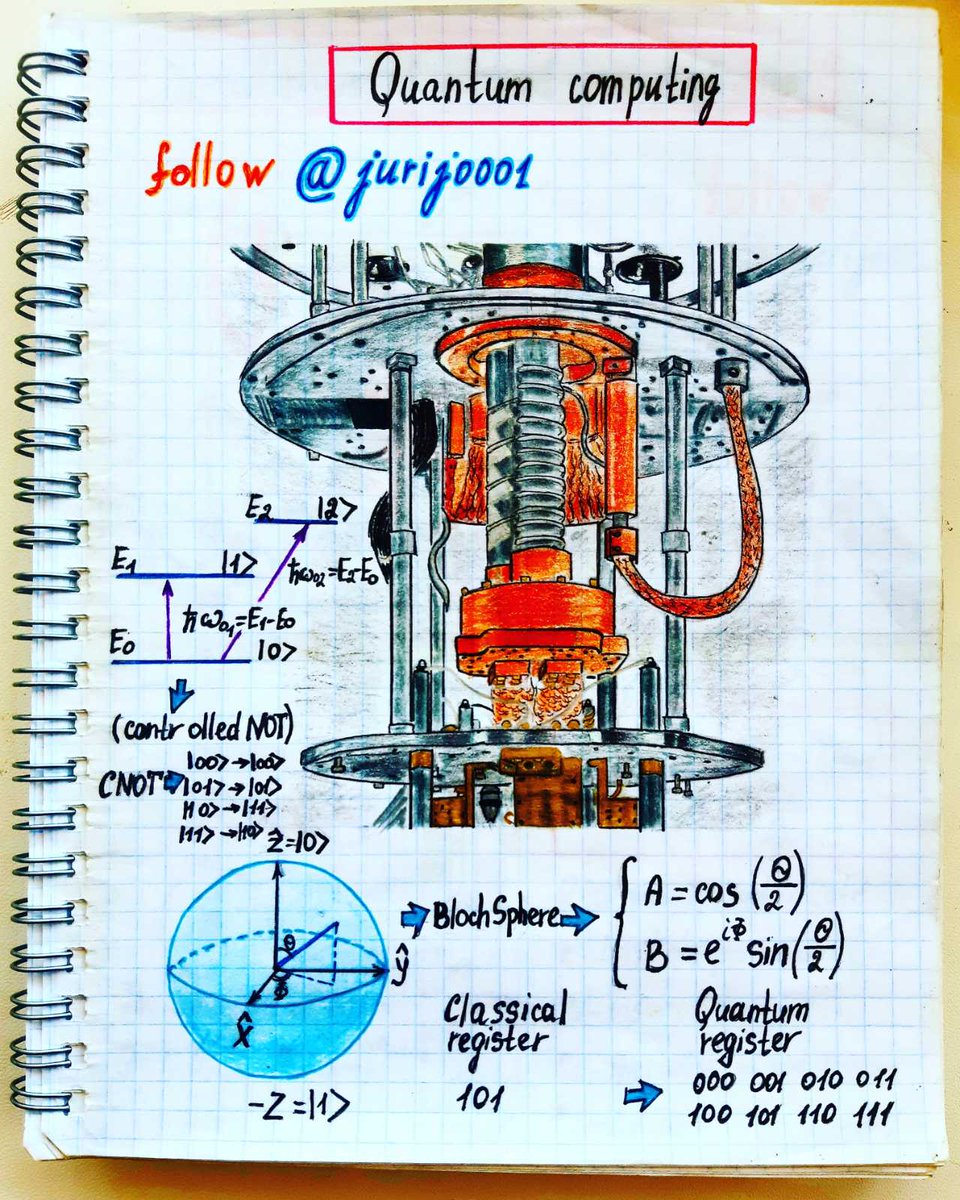 Quantum computing
follow @jurij0001
E₂ |2>
E₁ |1>
ħω₀₂=E₂-E₀
ħω₀₁=E₁-E₀
E₀ |0>
(controlled NOT)
CNOT
|00>→|00>
|01>→|01>
|10>→|11>
|11>→|10>
ẑ=|0>
θ
Φ
ŷ
x̂
-Z=|1>
Bloch Sphere
A = cos (θ/2)
B = e^iΦ sin(θ/2)
Classical
register
101
Quantum
register
000 001 010 011
100 101 110 111